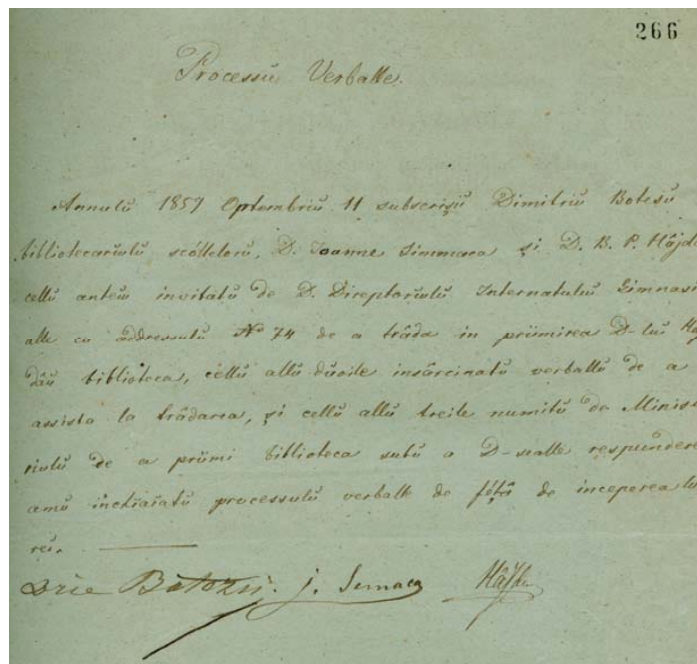 266
Processŭ Verballe.
Annulŭ 1857 Optembriŭ 11 subscrişiĭ Dimitriŭ Botesŭ
bibliotecariulŭ scóllelorŭ, D. Ioanne Simmaca şi D. B. P. Hâjdĕ
cellŭ anteiŭ invitatŭ de D. Direptoriulŭ Internatuluĭ Gimnasi
alle cu addressulŭ No 74 de a trăda in priimirea D-luĭ
dăŭ biblioteca, cellŭ allŭ duoile insărcinatŭ verballŭ de a
assista la trădarea, şi cellŭ allŭ treile numitŭ de Minist
riulŭ de a priimi biblioteca subŭ a D-sealle respundere
amŭ inchiaiatŭ processulŭ verballe de féţĭ de inceperea lu
reĭ.
J. Semaca